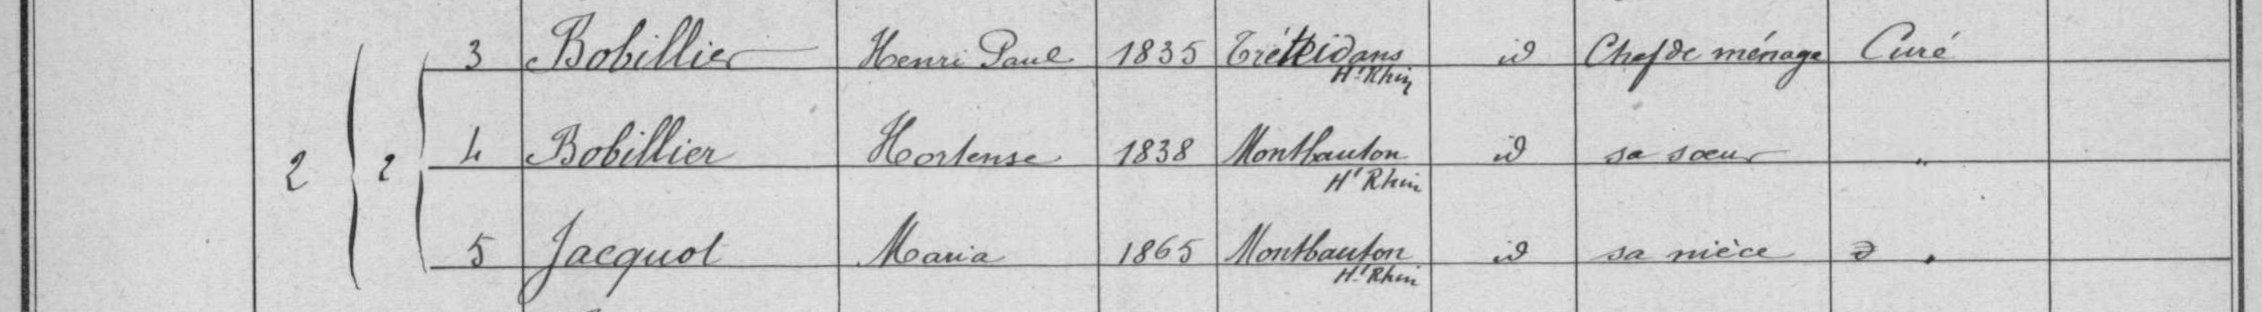 3 Bobillier Henri Paul 1835 Trétteidans Ht Rhin id Chef de ménage Curé
2 2 4 Bobillier Hortense 1838 Montbauton Ht Rhin id sa sœur "
5 Jacquot Maria 1865 Montbauton Ht Rhin id sa nièce